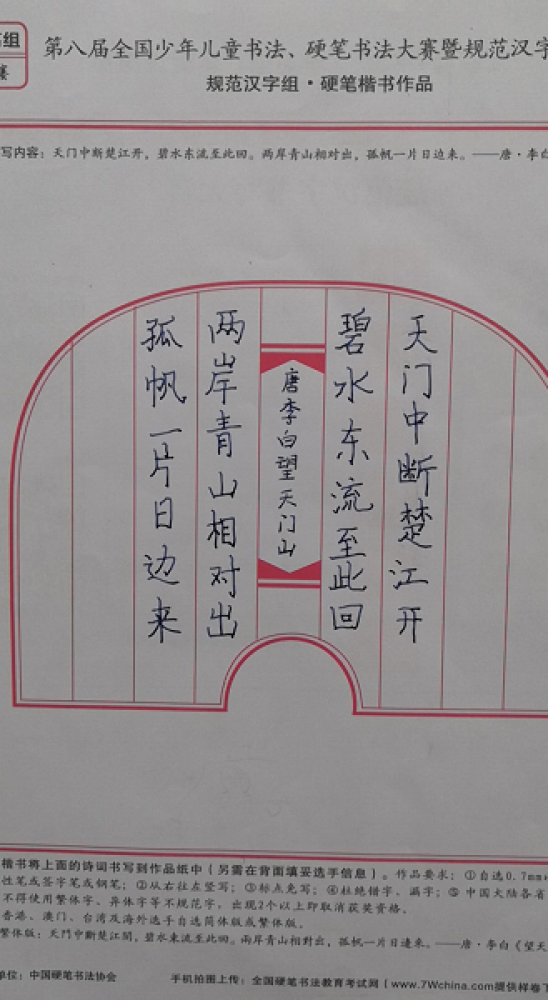 组
赛
第八届全国少年儿童书法、硬笔书法大赛暨规范汉字
规范汉字组·硬笔楷书作品
写内容：天门中断楚江开，碧水东流至此回。两岸青山相对出，孤帆一片日边来。——唐·李白
天门中断楚江开
碧水东流至此回
唐李白望天门山
两岸青山相对出
孤帆一片日边来
楷书将上面的诗词书写到作品纸中（另需在背面填妥选手信息）。作品要求：①自选0.7mm
性笔或签字笔或钢笔；②从右往左竖写；③标点免写；④杜绝错字、漏字；⑤中国大陆各省
不得使用繁体字、异体字等不规范字，出现2个以上即取消获奖资格。
香港、澳门、台湾及海外选手自选简体版或繁体版。
繁体版：天門中斷楚江開，碧水東流至此回。兩岸青山相對出，孤帆一片日邊來。——唐·李白《望天
单位：中国硬笔书法协会
手机拍图上传：全国硬笔书法教育考试网（www.7Wchina.com提供样卷下